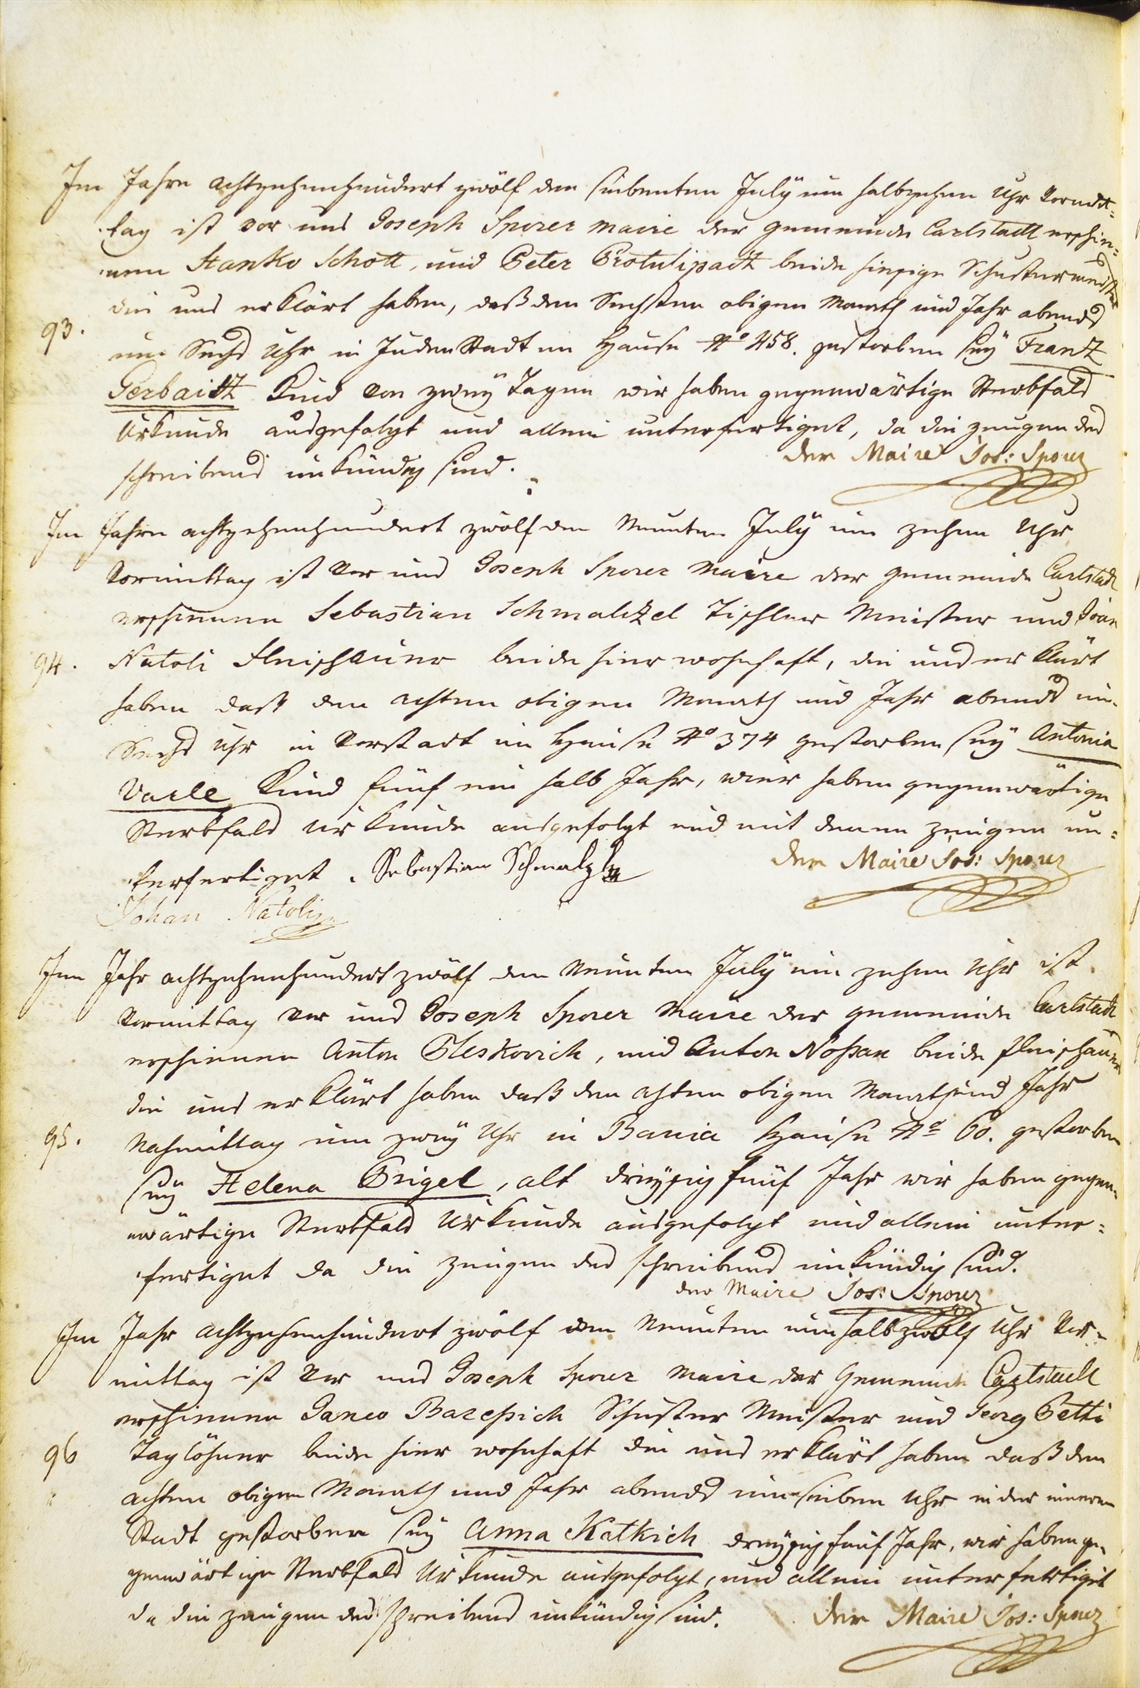 Im Jahre achtzehenhundert zwölf den siebenten July um halbzehen Uhr Vormit=
tag ist vor uns Joseph Sporer Maire der Gemeinde Carlstadt erschie=
nen Stanko Schott, und Peter Protulipacz beide hiesige Schustermeister
die uns erklärt haben, daß den Sechsten obigen Monath und Jahr abends
93.
um Sechs Uhr in Judenstadt im Hause No 458. gestorben seÿ Frantz
Gerbaitz Kind von zweÿ Tagen wir haben gegenwärtige Sterbfald
Urkunde ausgefolgt und allein unterfertiget, da die zeugen des
schreibens unkündig sind.
der Maire Jos: Sporer
Im Jahre achtzehenhundert zwölf den Neunten July um zehen Uhr
Vormittag ist vor uns Joseph Sporer Maire der Gemeinde Carlstadt
erschienen Sebastian Schmaltzel Tischler Meister und Ivan
94.
Natoli Fleischauer beide hier wohnhaft, die uns erklärt
haben daß den achten obigen Monath und Jahr abends um
Sechs Uhr in Vorstadt im Hause No 374 gestorben seÿ Antonia
Vaele Kind fünf ein halb Jahr, wier haben gegenwärtige
Sterbfald Urkunde ausgefolgt und mit denen zeugen un=
terfertiget. Sebastian Schmalzl
der Maire Jos: Sporer
Johan Natoli
Im Jahr achtzehenhundert zwölf den Neunten July um zehen Uhr ist
Vormittag vor uns Joseph Sporer Maire der Gemeinde Carlstadt
erschienen Anton Pleskovich, und Anton Noßan beide Fleischauer
die uns erklärt haben daß den achten obigen Monath und Jahr
95.
Nachmittag um zweÿ Uhr in Bania Hause No 60. gestorben
seÿ Helena Prigel, alt dreÿßig fünf Jahr wir haben gegen=
wärtige Sterbfald Urkunde ausgefolgt und allein unter=
fertiget da die zeugen des schreibens unkündig sind.
der Maire Jos: Sporer
Im Jahr achtzehenhundert zwölf den Neunten um halbzwölf Uhr Vor=
mittag ist vor uns Joseph Sporer Maire der Gemeinde Carlstadt
erschienen Janco Barepich Schuster Meister und Georg Petti
96
Taglöhner beide hier wohnhaft die uns erklärt haben daß den
achten obigen Monath und Jahr abends um sieben Uhr in der inneren
Stadt gestorben seÿ Anna Katkich dreÿßig fünf Jahr, wir haben ge=
genwärtige Sterbfald Urkunde ausgefolgt, und allein unterfertiget
da die zeugen des schreibens unkündig sind.
der Maire Jos: Sporer